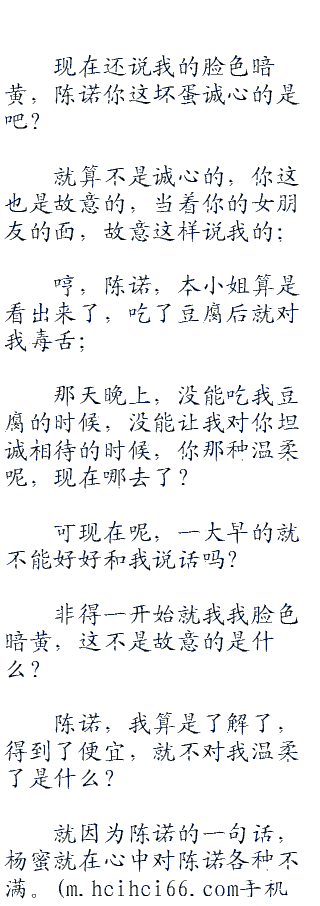 现在还说我的脸色暗
黄，陈诺你这坏蛋诚心的是
吧？
就算不是诚心的，你这
也是故意的，当着你的女朋
友的面，故意这样说我的；
哼，陈诺，本小姐算是
看出来了，吃了豆腐后就对
我毒舌；
那天晚上，没能吃我豆
腐的时候，没能让我对你坦
诚相待的时候，你那种温柔
呢，现在哪去了？
可现在呢，一大早的就
不能好好和我说话吗？
非得一开始就我我脸色
暗黄，这不是故意的是什
么？
陈诺，我算是了解了，
得到了便宜，就不对我温柔
了是什么？
就因为陈诺的一句话，
杨蜜就在心中对陈诺各种不
满。(m.hcihci66.com手机